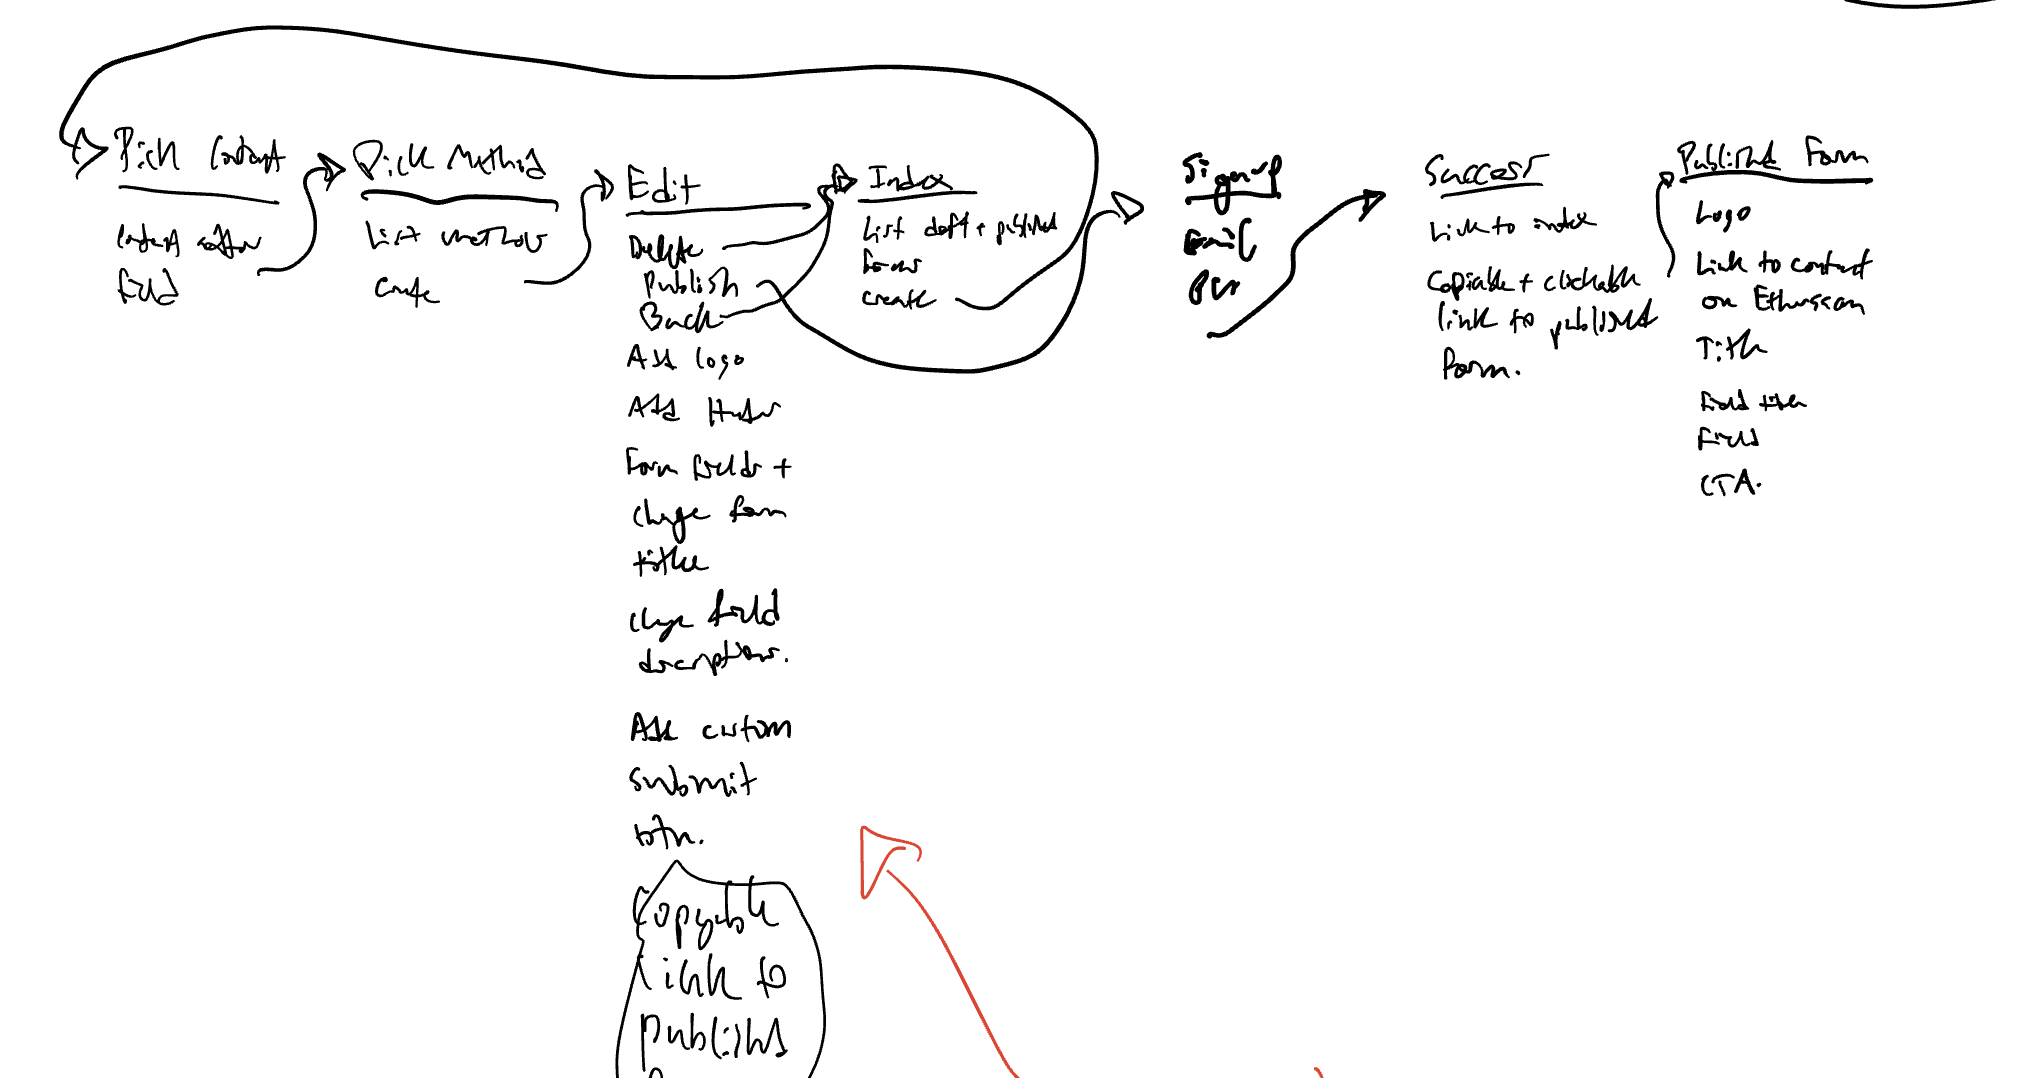 Pick Contract
Contract
field
Pick Method
List methods
Create
Edit
Delete
Publish
Back
Add logo
Add Header
Form fields +
Change form
title
Change field
descriptions.
Add custom
submit
btn.
Copyable
link to
published
Index
List draft + published
forms
create
Signup
Email
Success
Link to index
Copiable + clickable
link to published
Form.
Published Form
Logo
Link to contract
on Etherscan
Title
Field title
Field
CTA.